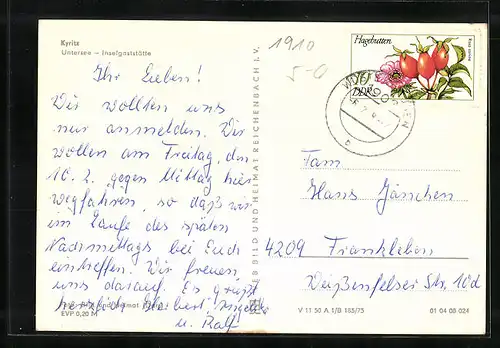 Kyritz
Untersee – Inselgaststätte
1910
5-0
Hagebutten
DDR
Ihr Lieben!
Wir wollten uns
nur anmelden. Wir
wollen am Freitag, den
10. 2. gegen Mittag hier
wegfahren, so daß wir
im Laufe des späten
Nachmittags bei Euch
eintreffen. Wir freuen
uns darauf. Es grüßt
herzlich
u. Ralf
EVP 0,20 M
VEB BILD UND HEIMAT REICHENBACH I. V.
Fam
Hans Jänchen
4209 Frankleben
Weißenfelser Str. 10d
V 11 50 A 1/B 185/75
01 04 08 024